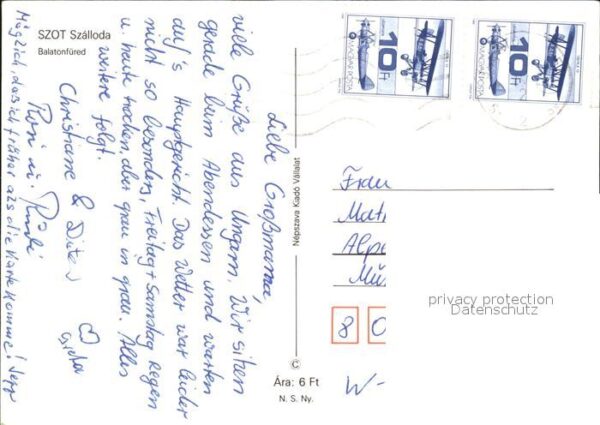 SZOT Szálloda
Balatonfüred
Liebe Großmama,
viele Grüße aus Ungarn. Wir sitzen
gerade beim Abendessen und warten
auf's Hauptgericht. Das Wetter war leider
nicht so besonders, Freitag + Samstag Regen
u. heute trocken, aber grau in grau. Alles
weitere folgt.
Christiane & Dieter
Möglich, daß ich früher als die Karte komme!
Népszava Kiadó Vállalat
©
Ára: 6 Ft
N. S. Ny.
MAGYAR POSTA
10 Ft
MAGYAR POSTA
10 Ft
Frau
Mat
Alpe
Mü
8 0
W-
privacy protection
Datenschutz